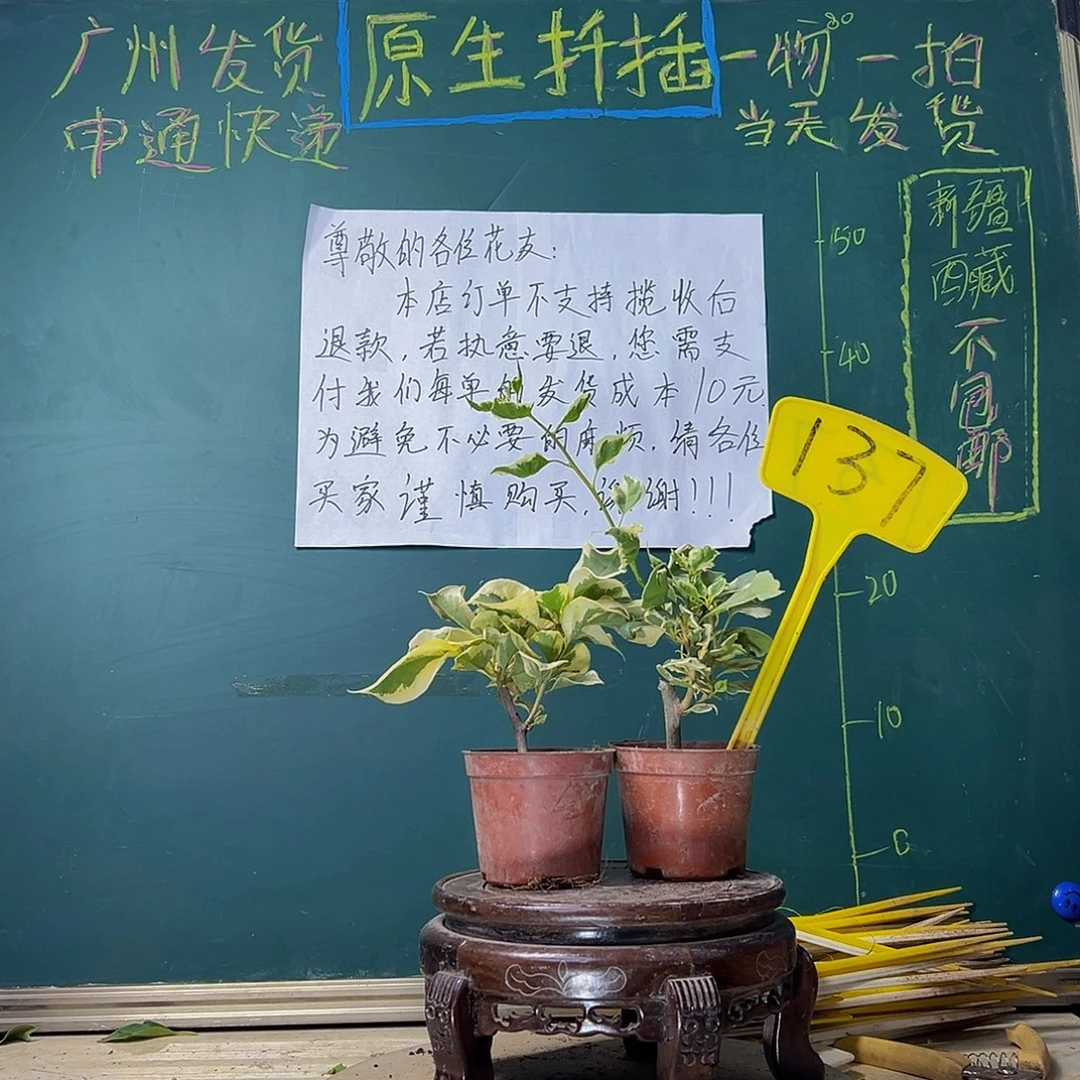 广州发货
申通快递
原生扦插
一物一拍
80
当天发货
尊敬的各位花友:
本店订单不支持揽收后
退款,若执意要退,您需支
付我们每单的发货成本10元
为避免不必要的麻烦,请各位
买家谨慎购买,谢谢!!!
50
40
20
10
0
新疆
西藏
不包邮
137